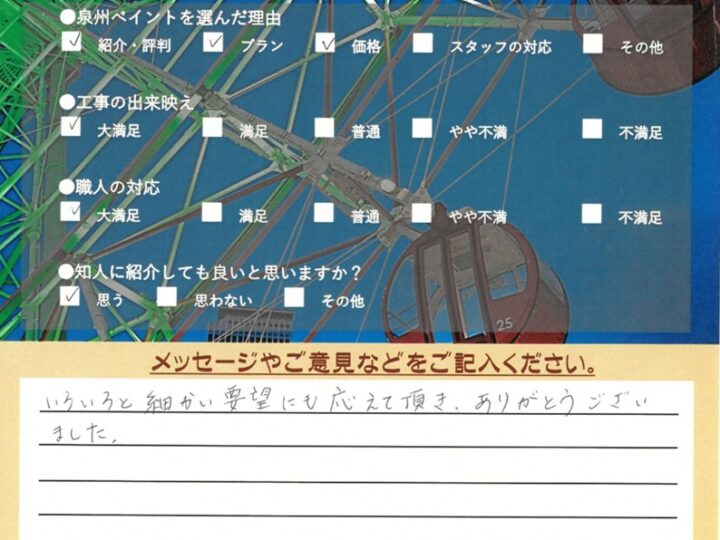 ●泉州ペイントを選んだ理由
☑ 紹介・評判 ☑ プラン ☑ 価格 □ スタッフの対応 □ その他
●工事の出来映え
☑ 大満足 □ 満足 □ 普通 □ やや不満 □ 不満足
●職人の対応
☑ 大満足 □ 満足 □ 普通 □ やや不満 □ 不満足
●知人に紹介しても良いと思いますか？
☑ 思う □ 思わない □ その他
25
メッセージやご意見などをご記入ください。
いろいろと細かい要望にも応えて頂き、ありがとうござい
ました。